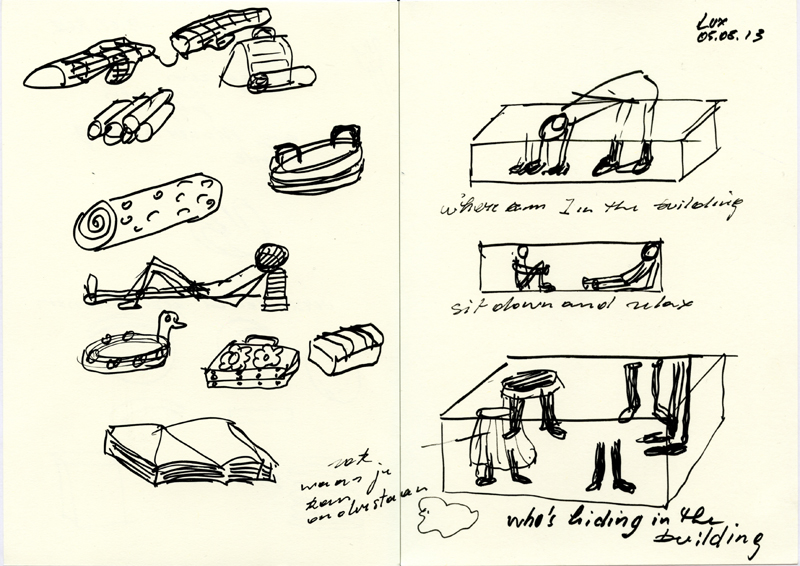 zak
waar je
kan
onderstaan
Lux
05.08.13
where am I in the building
sit down and relax
who's hiding in the
building